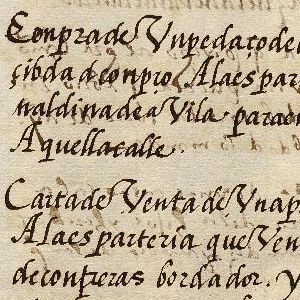 Conpra de Vn pedaço de
çibdad conpro Alaes par
naldina de aVila para en
Aquella calle
Carta de Venta de Vna p
Ala espartería que Ven
de contreras bordador. y